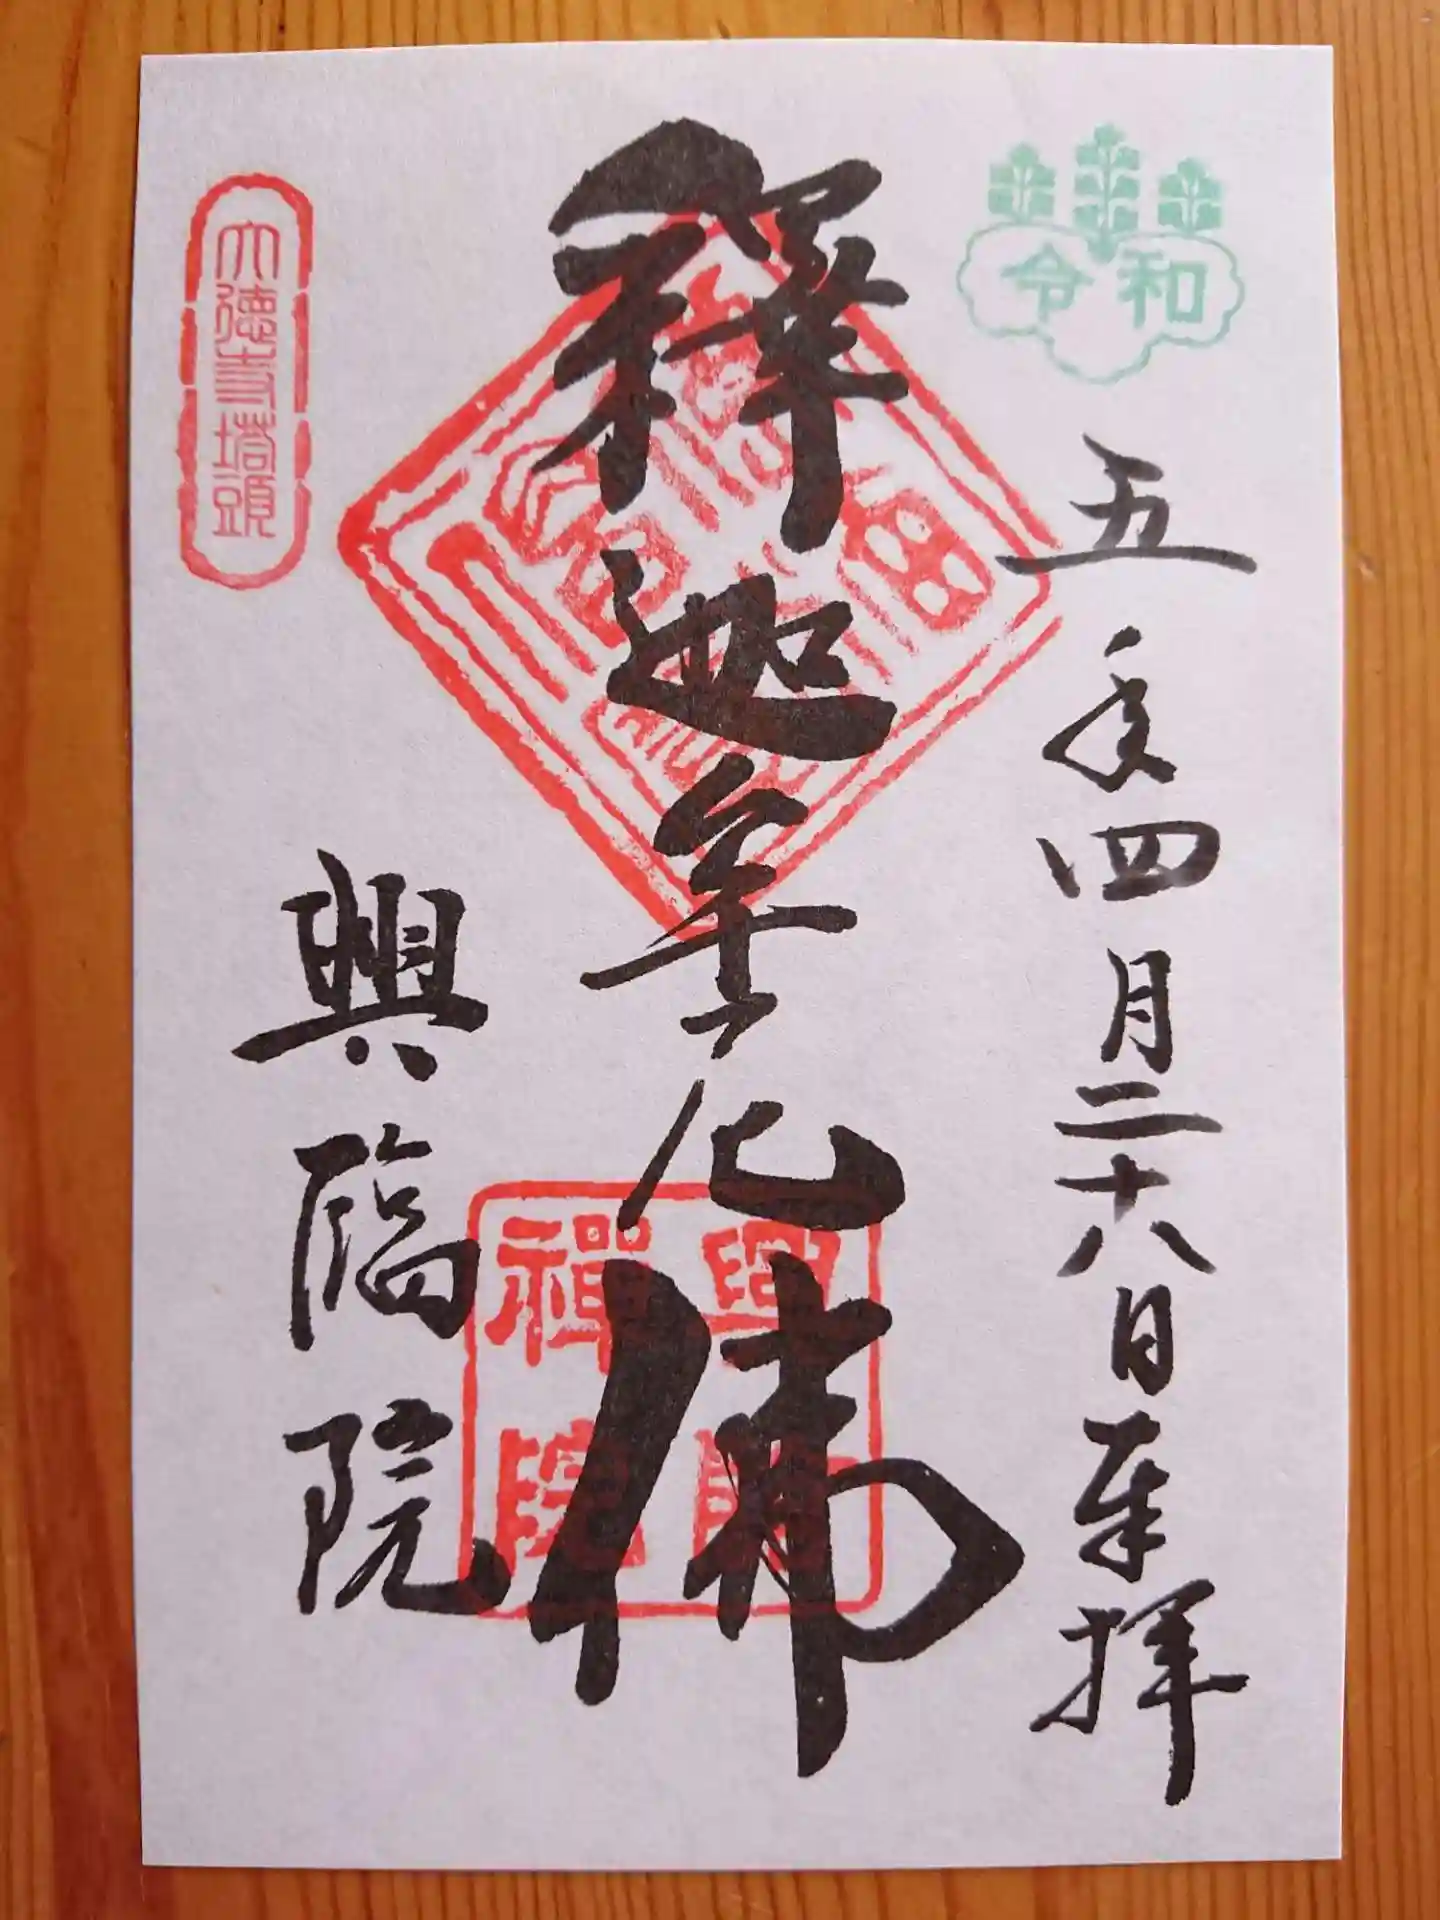 令和
五年四月二十八日奉拝
釋迦牟尼佛
興臨院
大徳寺塔頭
佛法僧寶
興臨禅院